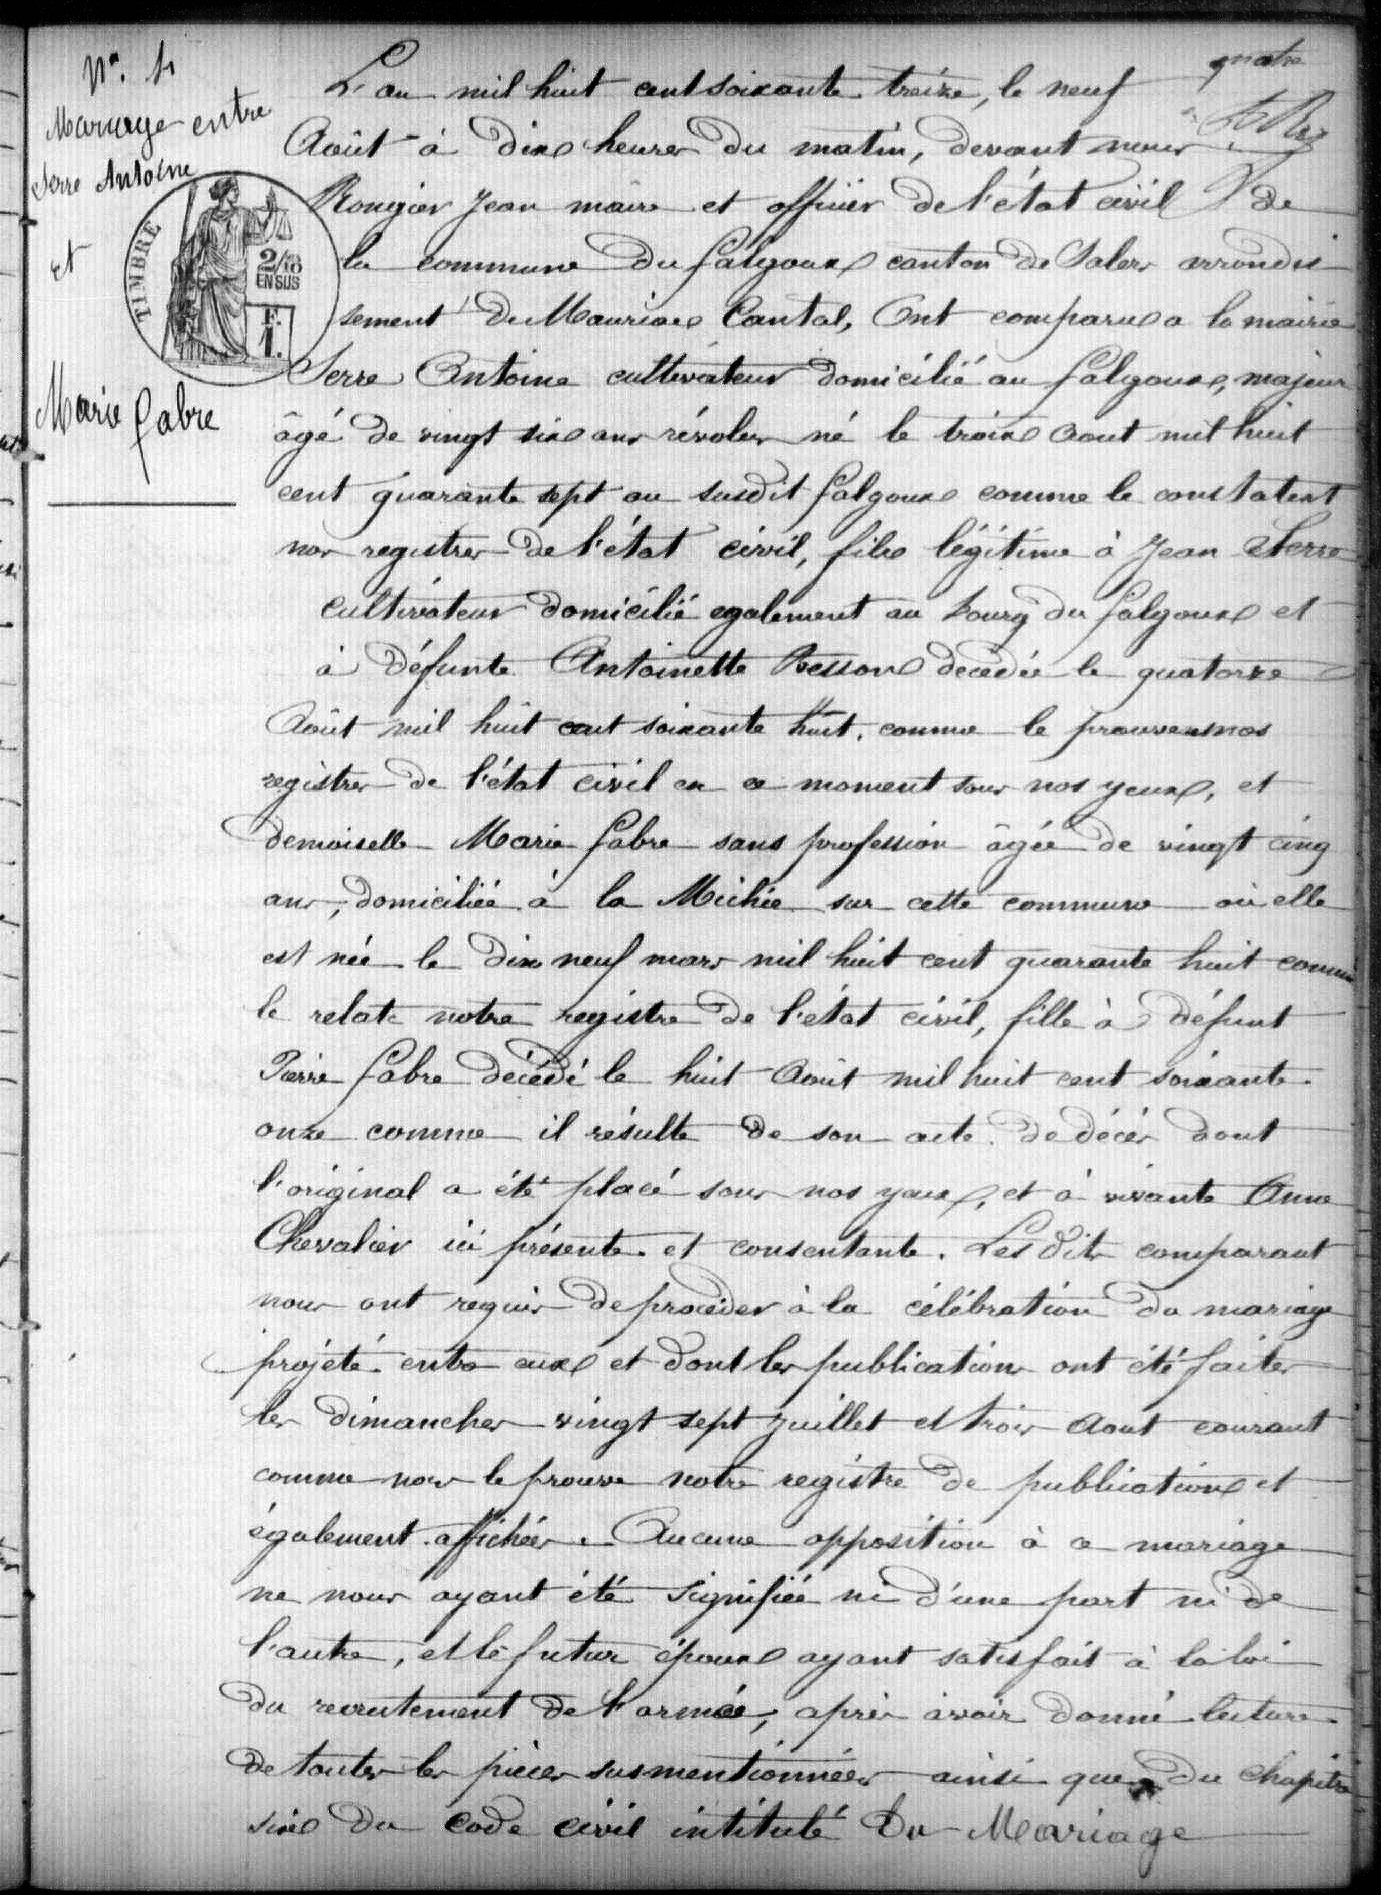 quatre
N°. 4
Mariage entre
Serre Antoine
et
Marie Fabre
TIMBRE
2/10
EN SUS
F.
1.
L'an mil huit cent soixante treize, le neuf
Août à dix heures du matin, devant nous
Rougier Jean maire et officier de l'état civil de
la commune du Falgoux canton de Salers arrondis
sement de Mauriac Cantal, Ont comparu a la mairie
Serre Antoine cultivateur domicilié au Falgoux, majeur
âgé de vingt six ans révolus né le trois Aout mil huit
cent quarante sept au susdit Falgoux comme le constatent
nos registres de l'état civil, fils légitime à Jean Serre
cultivateur domicilié egalement au bourg du Falgoux et
à défunte Antoinette Besson décédée le quatorze
Août mil huit cent soixante huit, comme le prouvent nos
registres de l'état civil en ce moment sous nos yeux, et
demoiselle Marie Fabre sans profession âgée de vingt cinq
ans, domiciliée à la Michie sur cette commune où elle
est née le dix neuf mars mil huit cent quarante huit comme
le relate notre registre de l'état civil, fille à défunt
Pierre Fabre décédé le huit Août mil huit cent soixante
onze comme il résulte de son acte de décès dont
l'original a été placé sous nos yeux, et à vivante Anne
Chevalier ici présente et consentante. Les dits comparant
nous ont requis de procéder à la célébration du mariage
projeté entre eux et dont les publications ont été faites
les dimanches vingt sept juillet et trois Aout courant
comme nous le prouve notre registre de publications et
également affichées. Aucune opposition à ce mariage
ne nous ayant été signifiée ni d'une part ni de
l'autre, et le futur époux ayant satisfait à la loi
du recrutement de l'armée, après avoir donné lecture
de toutes les pièces susmentionnées ainsi que du chapitre
six du code civil intitulé Du Mariage